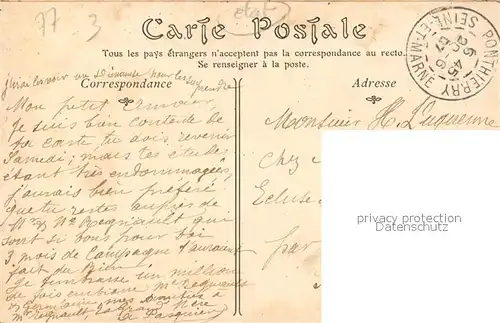 77
3
état
Carte Postale
Tous les pays étrangers n'acceptent pas la correspondance au recto.
Se renseigner à la poste.
Correspondance
Adresse
PONTHIERRY
SEINE-ET-MARNE
j'irai te voir un Dimanche pour les
Mon petit
Je suis bien contente de
ta carte, tu dois revenir
Samedi; mais tes études
étant très endommagées,
j'aurais bien préféré
que tu restes auprès de
Mr & Me Regnault qui
sont si bons pour toi
3 mois de Campagne t'auraient
fait du Bien
Je t'embrasse un million
de fois embrasse Mr Regnault
& Germaine, mes amitiés à
Me Regnault, ta Grand'Mère
Pasquier
Monsieur H. Duquenne
Chez
Ecluse
par
privacy protection
watermark